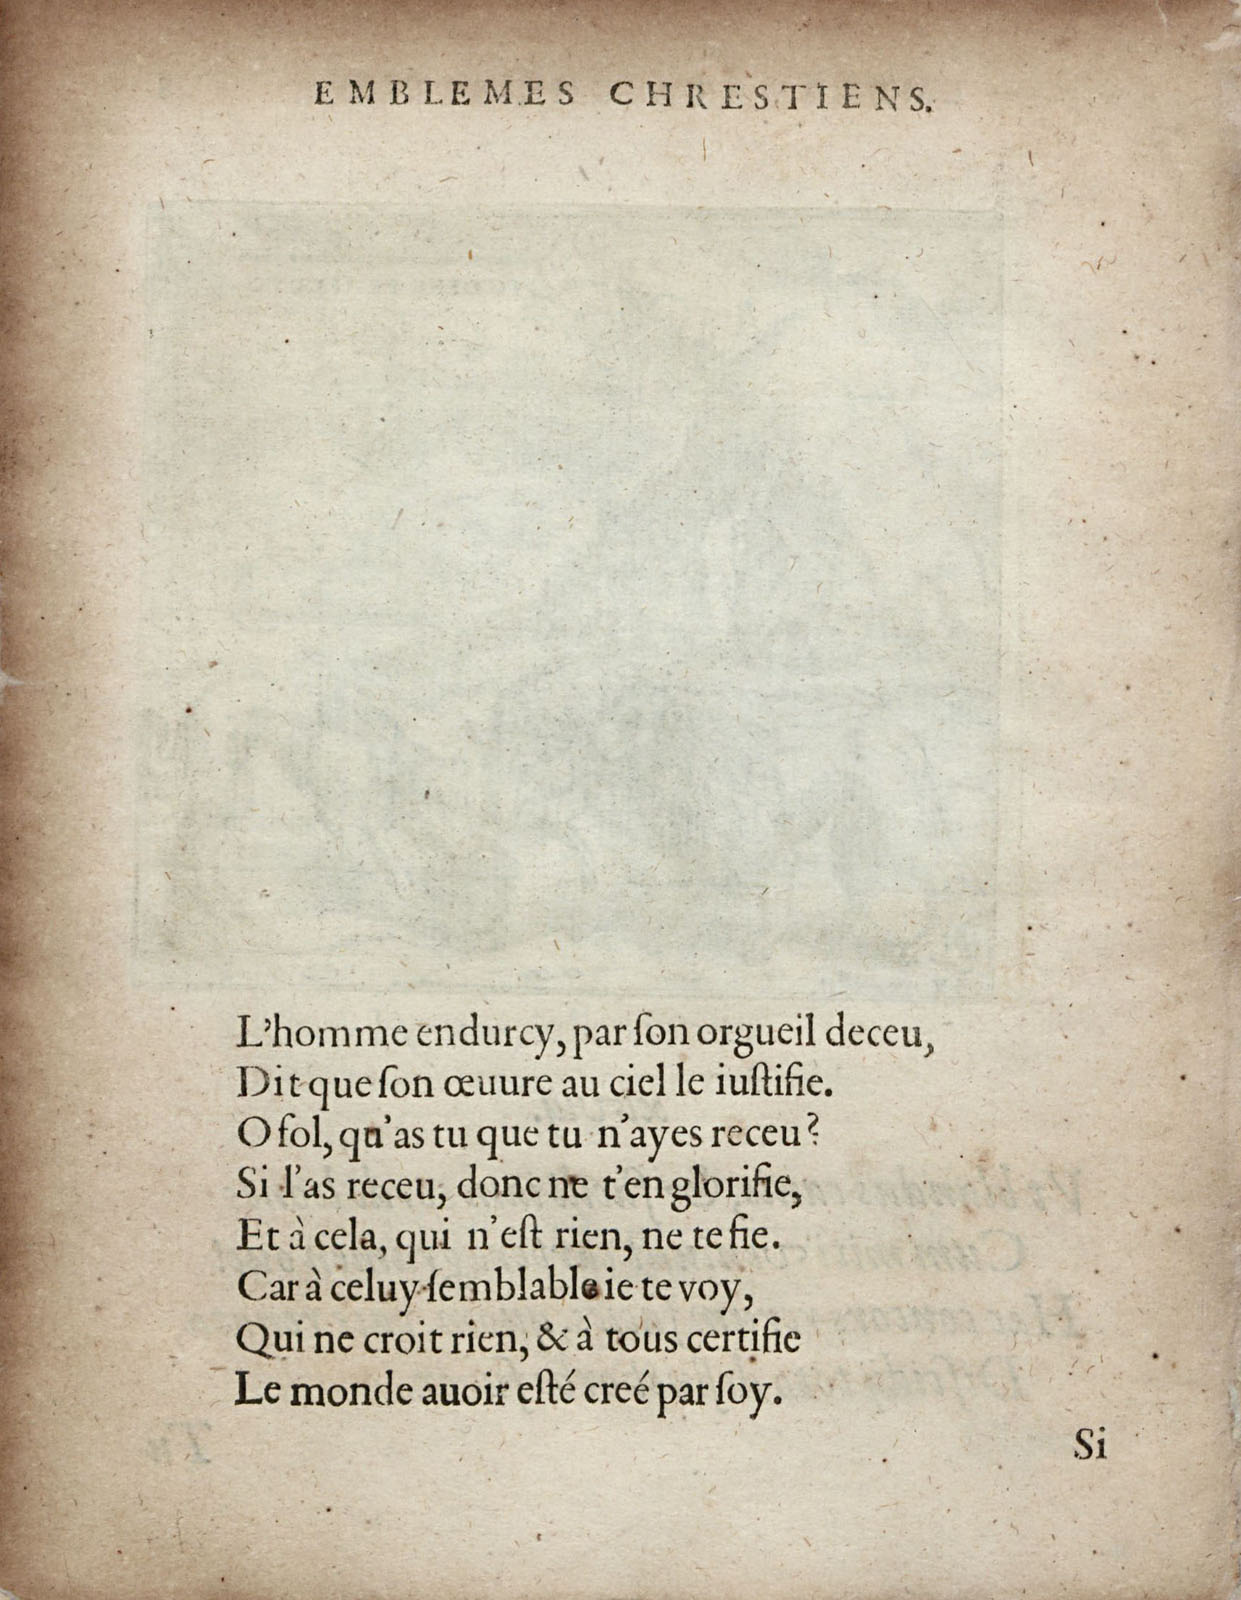 EMBLEMES CHRESTIENS.
L'homme endurcy, par ſon orgueil deceu,
Dit que ſon œuure au ciel le iuſtifie.
O fol, qu'as tu que tu n'ayes receu?
Si l'as receu, donc ne t'en glorifie,
Et à cela, qui n'eſt rien, ne te fie.
Car à celuy ſemblable ie te voy,
Qui ne croit rien, & à tous certifie
Le monde auoir eſté creé par ſoy.
Si